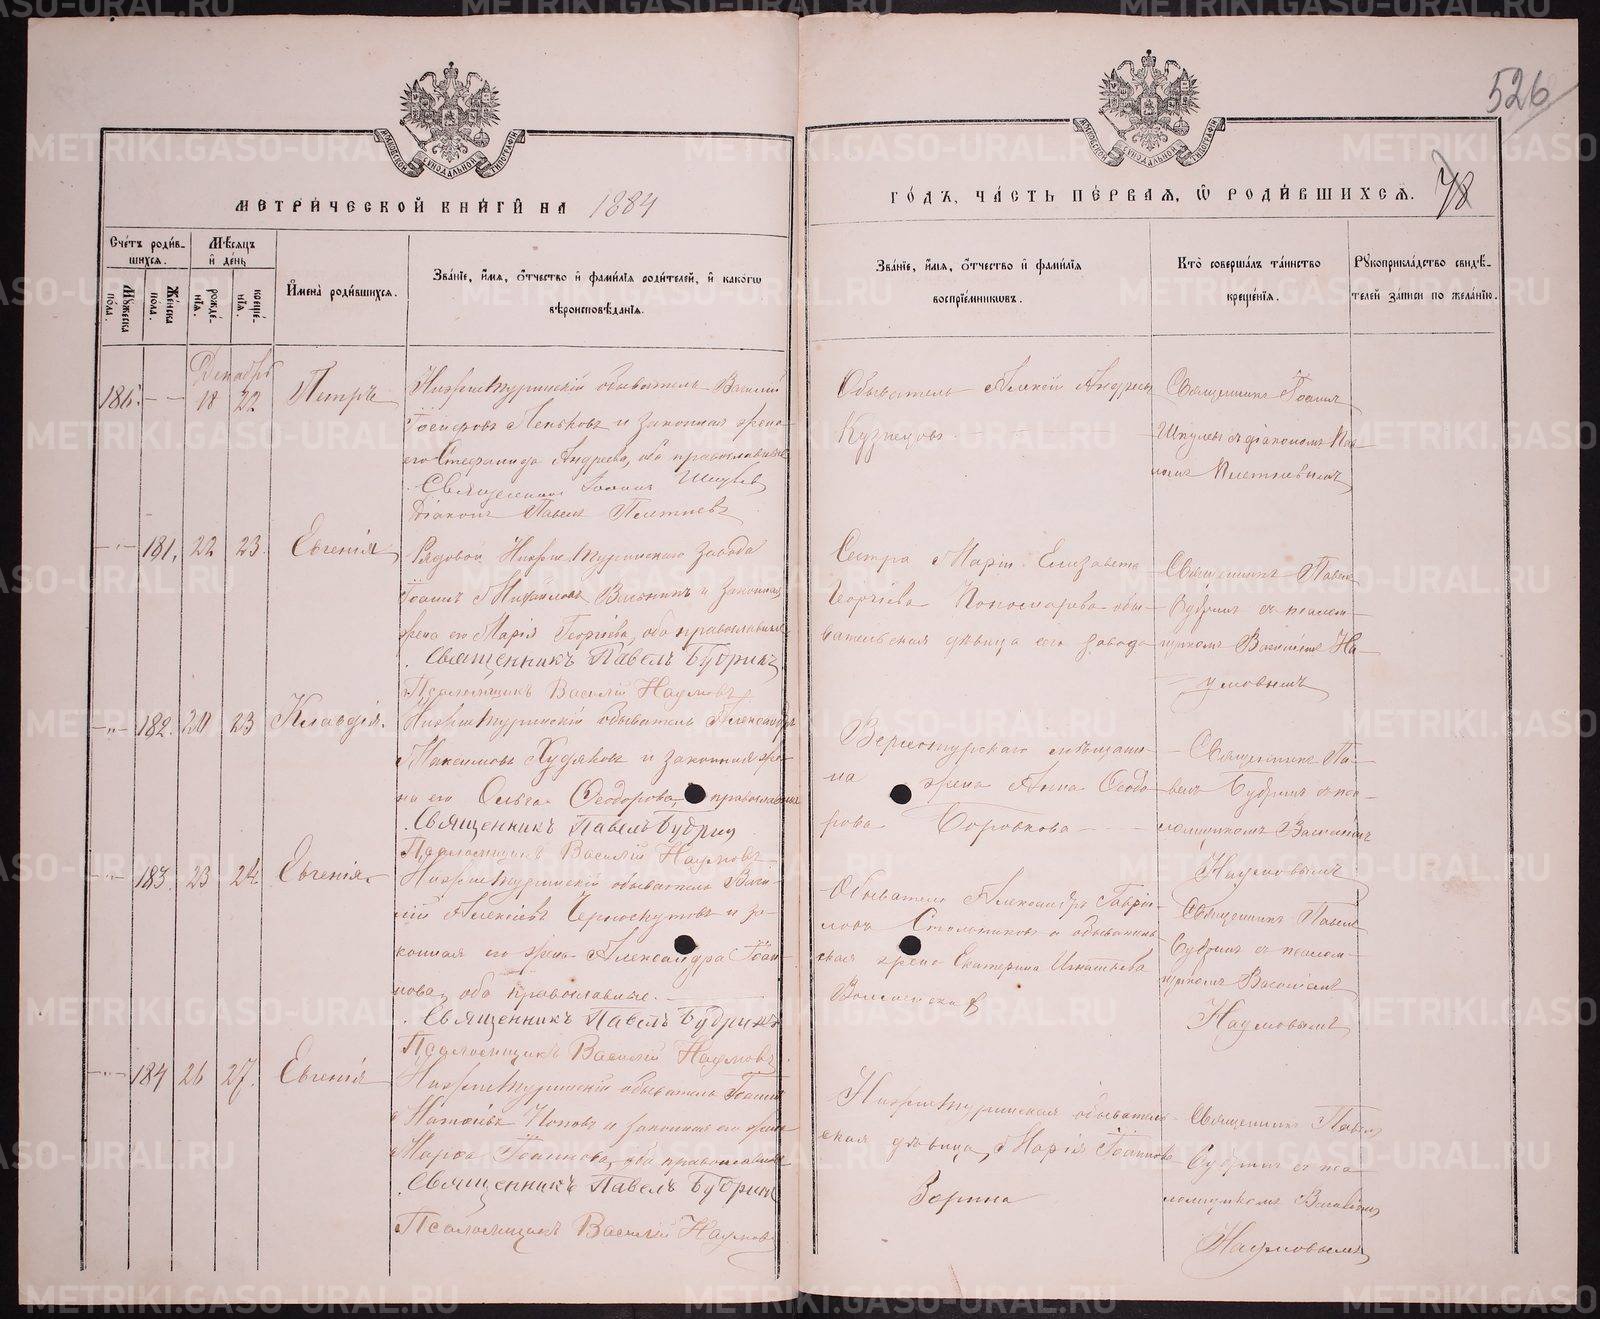 526
МЕТРИ́ЧЕСКОЙ КНИ́ГИ НА 1884
ГО́ДЪ, ЧА́СТЬ ПЕ́РВАЯ, Ѡ РОДИ́ВШИХСѦ. 78
Сче́тъ роди́в-
шихсѧ.
Мꙋ́жеска
по́ла.
Же́нска
по́ла.
Мѣ́сѧцъ
и де́нь
рожде́-
нїѧ.
креще́-
нїѧ.
И҆мена̀ роди́вшихсѧ.
Зва́нїе, и҆́мѧ, ѻ҆́тчество и҆ фами́лїѧ роди́телей, и҆ како́гѡ
вѣроисповѣ́данїѧ.
Зва́нїе, и҆́мѧ, ѻ҆́тчество и҆ фами́лїѧ
воспрїе́мникѡвъ.
Кто̀ соверша́лъ та́инство
креще́нїѧ.
Рꙋкоприкла́дство свидѣ́-
телей за́писи по жела́нїю.
Декабрь
186. — — 18 22 Петръ
Нижнетуринскій обыватель Василій
Іосифовъ Пеньковъ и законная жена
его Стефанида Андреева, оба православные
Священникъ Іоаннъ Шкулевъ
Діаконъ Павелъ Плетневъ
Обыватель Алексѣй Андреевъ
Кузнецовъ.
Священникъ Іоаннъ
Шкулевъ съ діакономъ Пав-
ломъ Плетневымъ
— " — 181. 22 23. Евгенія
Рядовой Нижнетуринскаго завода
Іоаннъ Михайловъ и законная
жена его Марія Георгіева, оба православные
Священникъ Павелъ Будринъ
Псаломщикъ Василій Наумовъ
Сестра Маріи Елизавета
Георгіева Пономарева обы-
вательская дѣвица сего завода
Священникъ Павелъ
Будринъ съ псалом-
щикомъ Василіемъ На-
умовымъ
— " — 182. 20 23 Клавдія.
Нижнетуринскій обыватель Александръ
Максимовъ Худяковъ и законная же-
на его Ольга Ѳеодорова, православные
Священникъ Павелъ Будринъ
Псаломщикъ Василій Наумовъ
Верхотурскаго мѣщани-
на жена Анна Ѳеодо-
рова Боровкова
Священникъ Па-
велъ Будринъ съ пса-
ломщикомъ Василіемъ
Наумовымъ
— " — 183. 23 24. Евгенія.
Нижнетуринскій обыватель Васи-
лій Алексѣевъ Черноскутовъ и за-
конная его жена Александра Іоан-
нова, оба православные.
Священникъ Павелъ Будринъ
Псаломщикъ Василій Наумовъ.
Обыватель Александръ Гаврі-
ловъ Стольниковъ и обыватель-
ская жена Екатерина Игнатьева
Священникъ Павелъ
Будринъ съ псалом-
щикомъ Василіемъ
Наумовымъ
— " — 184 26 27. Евгенія
Нижнетуринскій обыватель Іоаннъ
Матѳіевъ Поповъ и законная его жена
Марѳа Іоаннова, оба православные
Священникъ Павелъ Будринъ
Псаломщикъ Василій Наумовъ
Нижнетуринская обыватель-
ская дѣвица, Марія Іоаннова
Зорина
Священникъ Павелъ
Будринъ съ пса-
ломщикомъ Василіемъ
Наумовымъ
METRIKI.GASO-URAL.RU